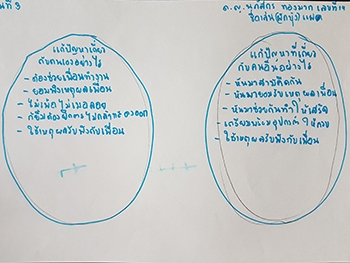 นที่ 3
ด.ญ. นภัสกร ทองมาก เลขที่ 19
ชื่อเล่น
แก้ปัญหาเกี่ยว
กับตนเองอย่างไร
- ต้องช่วยเพื่อนทำงาน
- ยอมฟังเหตุผลเพื่อน
- ไม่เหม่อ ไม่เมอลอย
- ใช้เหตุผลรับฟังกับเพื่อน
แก้ปัญหาที่เกี่ยว
กับคนอื่นอย่างไร
- หันมาสามัคคีกัน
- หันมายอมรับเหตุผลเพื่อน
- หันมาช่วยกันทำให้เสร็จ
- เตรียมพร้อมอุปกรณ์ให้ครบ
- ใช้เหตุผลรับฟังกับเพื่อน